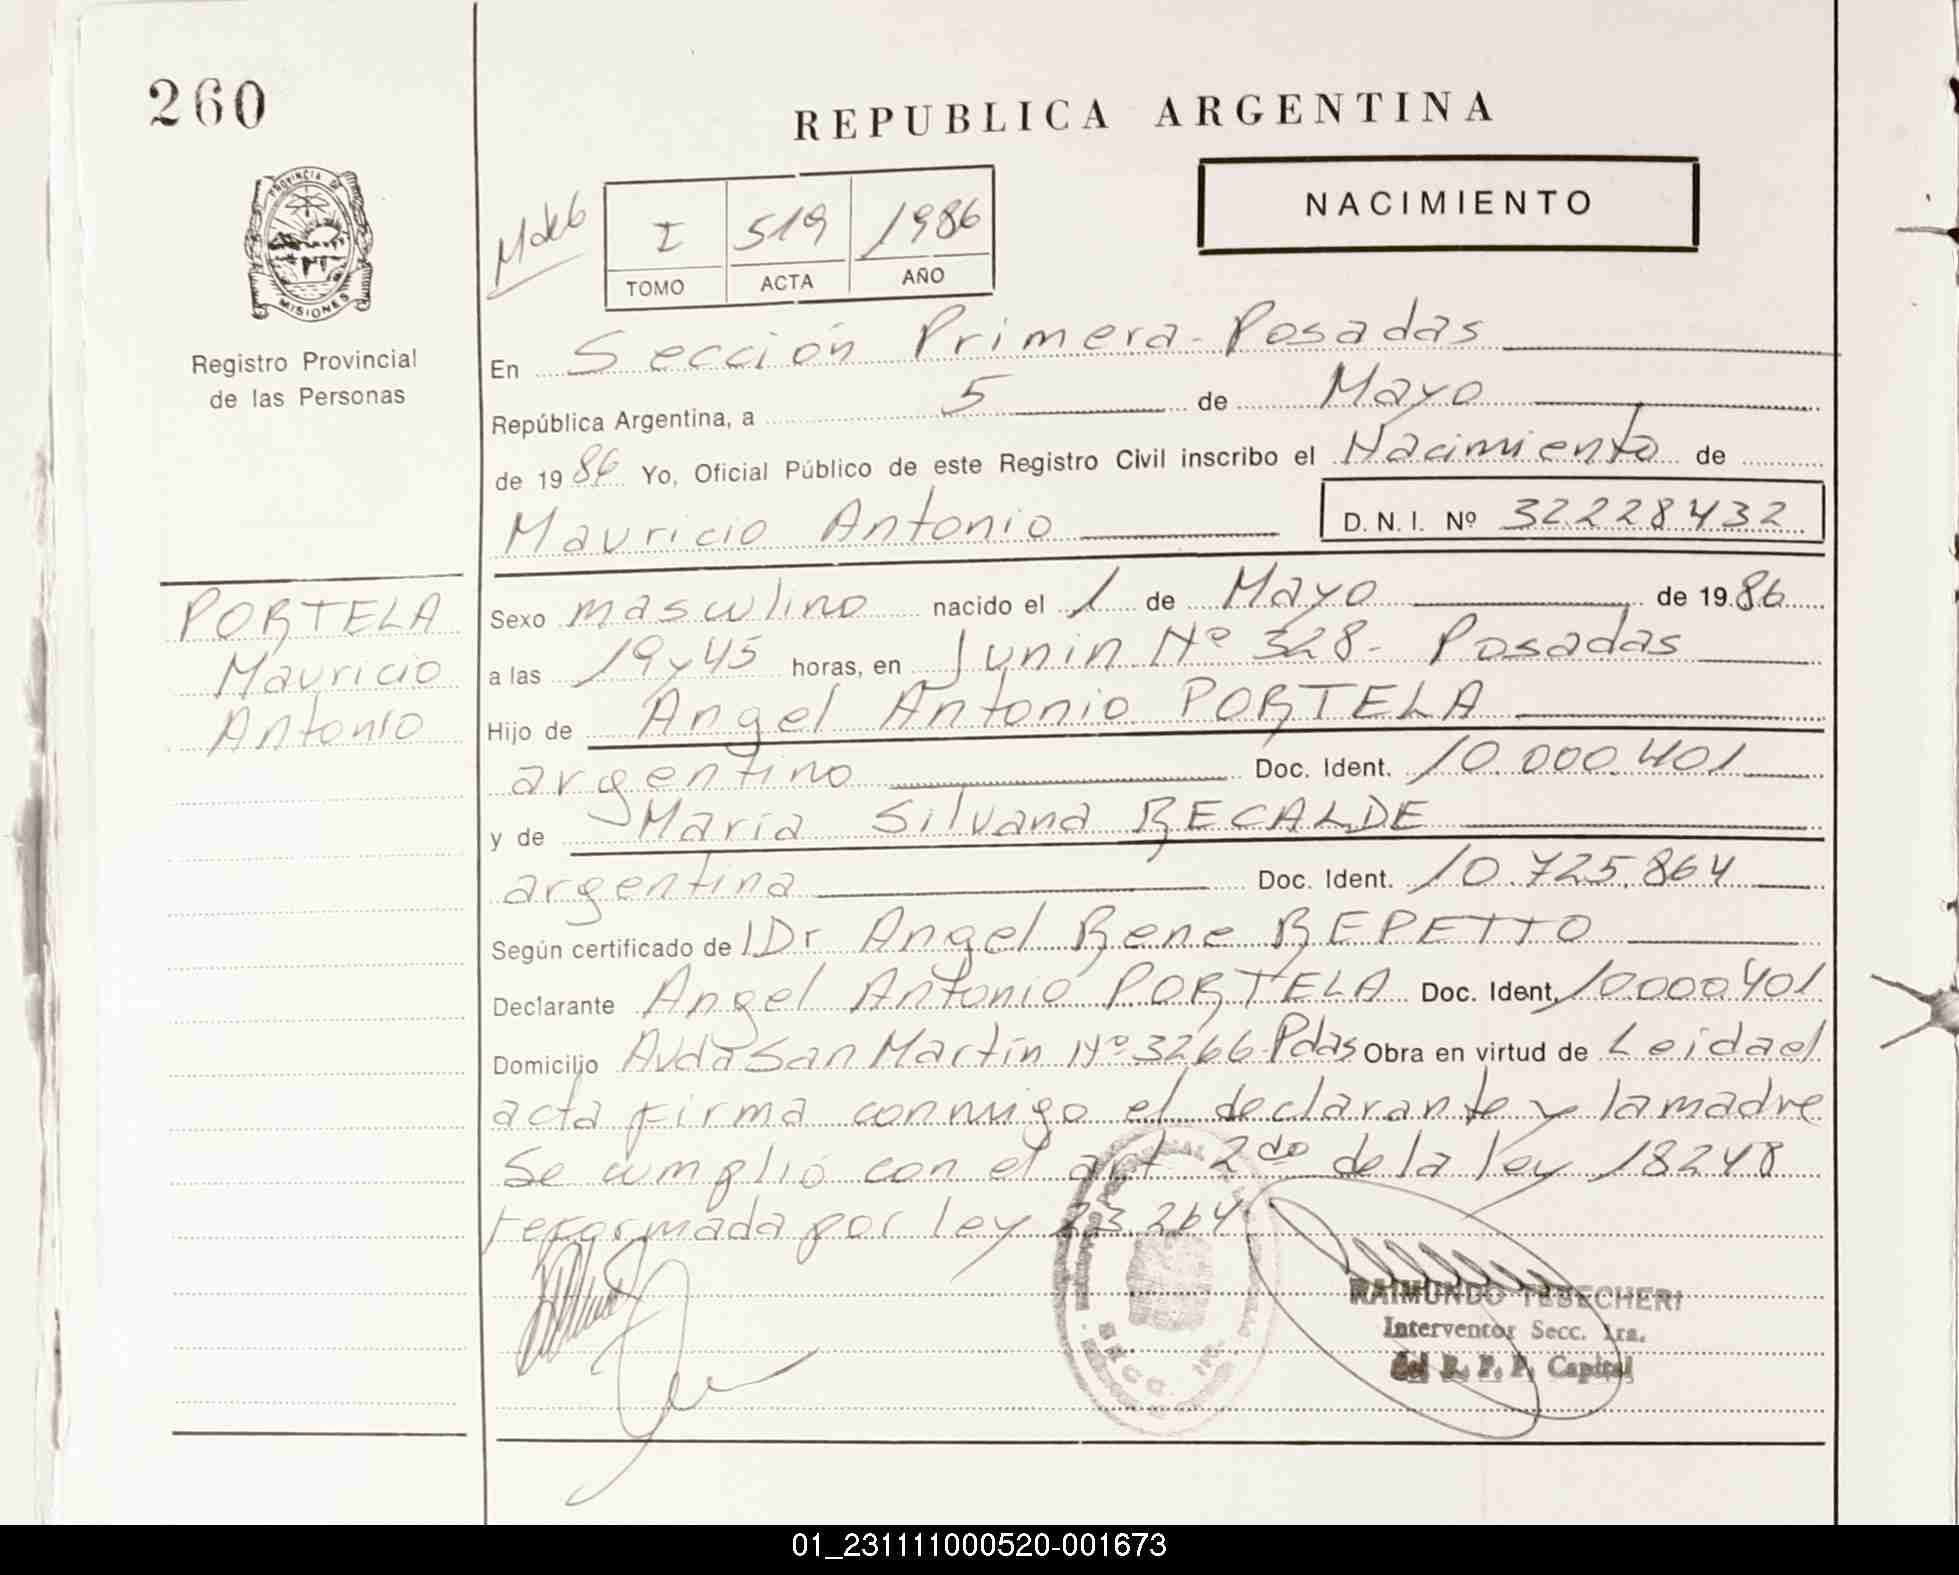 260
REPUBLICA ARGENTINA
NACIMIENTO
I 519 1986
TOMO ACTA AÑO
PROVINCIA DE
MISIONES
Registro Provincial
de las Personas
En Sección Primera - Posadas
República Argentina, a 5 de Mayo
de 1986 Yo, Oficial Público de este Registro Civil inscribo el Nacimiento de
Mauricio Antonio D.N.I. Nº 32228432
PORTELA
Mauricio
Antonio
Sexo masculino nacido el 1 de Mayo de 1986
a las 19 y 45 horas, en Junin Nº 328 - Posadas
Hijo de Angel Antonio PORTELA
argentino Doc. Ident. 10.000.401
y de Maria Silvana RECALDE
argentina Doc. Ident. 10.725.864
Según certificado de Dr Angel Rene REPETTO
Declarante Angel Antonio PORTELA Doc. Ident. 10000401
Domicilio Avda San Martín Nº 3266 Pdas Obra en virtud de Leida el
acta firma conmigo el declarante y la madre
Se cumplió con el art 2do de la ley 18248
reformada por ley 23.264
RAIMUNDO TEBECHERI
Interventor Secc. 1ra.
del R. P. P. Capital
01_231111000520-001673